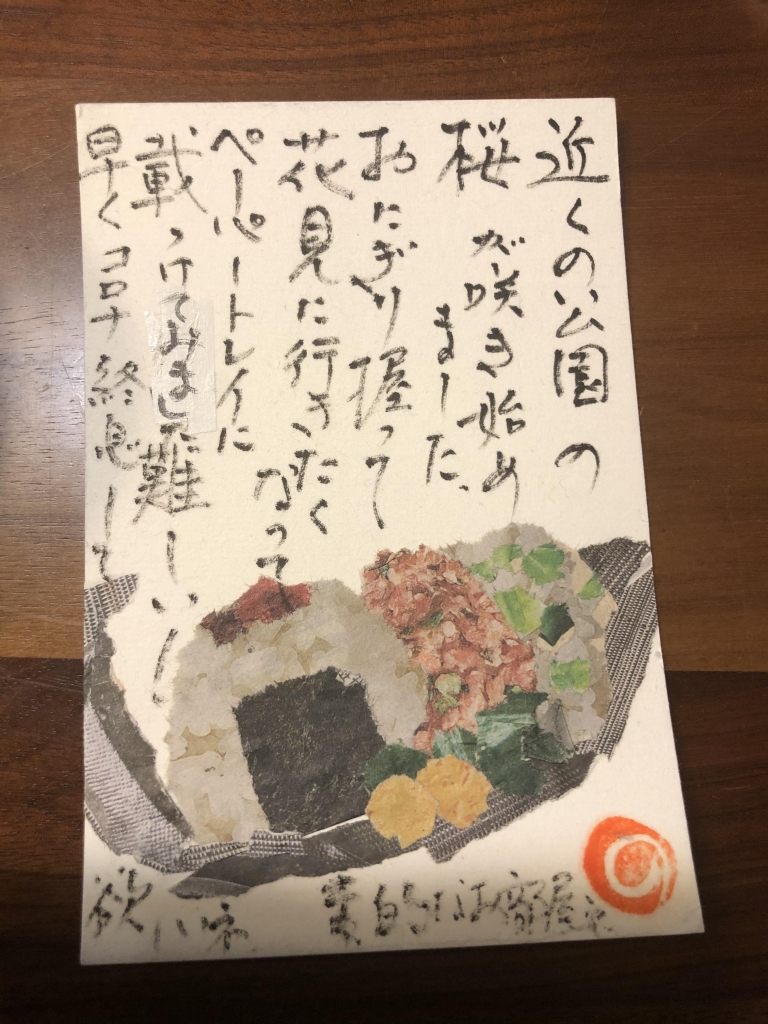 近くの公園の
桜が咲き始め
ました、
おにぎり握って
花見に行きたく
なって
ペーパートレイに
載っけてみました難しい!
早くコロナ終息して
欲しいネ